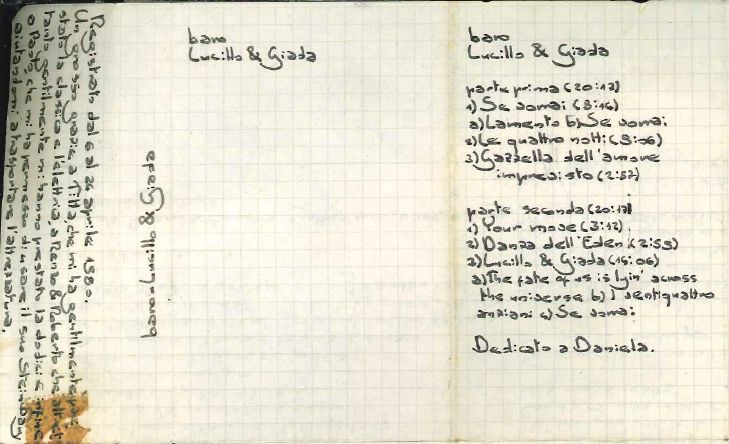 Registrato dal 6 al 26 aprile 1980.
Un grosso grazie a Titta, che mi ha gentilmente
stato la classica e l'elettrica, a Renzo & Roberto che altret
tanto gentilmente mi hanno prestato la dodici e infine
a Paolo, che mi ha permesso di usare il suo Steinway
aiutandomi a trasportare l'attrezzatura.
baro-Lucillo & Giada
baro
Lucillo & Giada
baro
Lucillo & Giada
parte prima (20:17)
1) Se vorrai (8:16)
a) Lamento b) Se vorrai
2) Le quattro notti (9:06)
3) Gazzella dell'amore
imprevisto (2:57)
parte seconda (20:17)
1) Your move (3:12).
2) Danza dell'Eden (2:59)
3) Lucillo & Giada (14:06)
a) The fate of us is lyin' across
the universe b) I ventiquattro
anziani c) Se vorrai
Dedicato a Daniela.